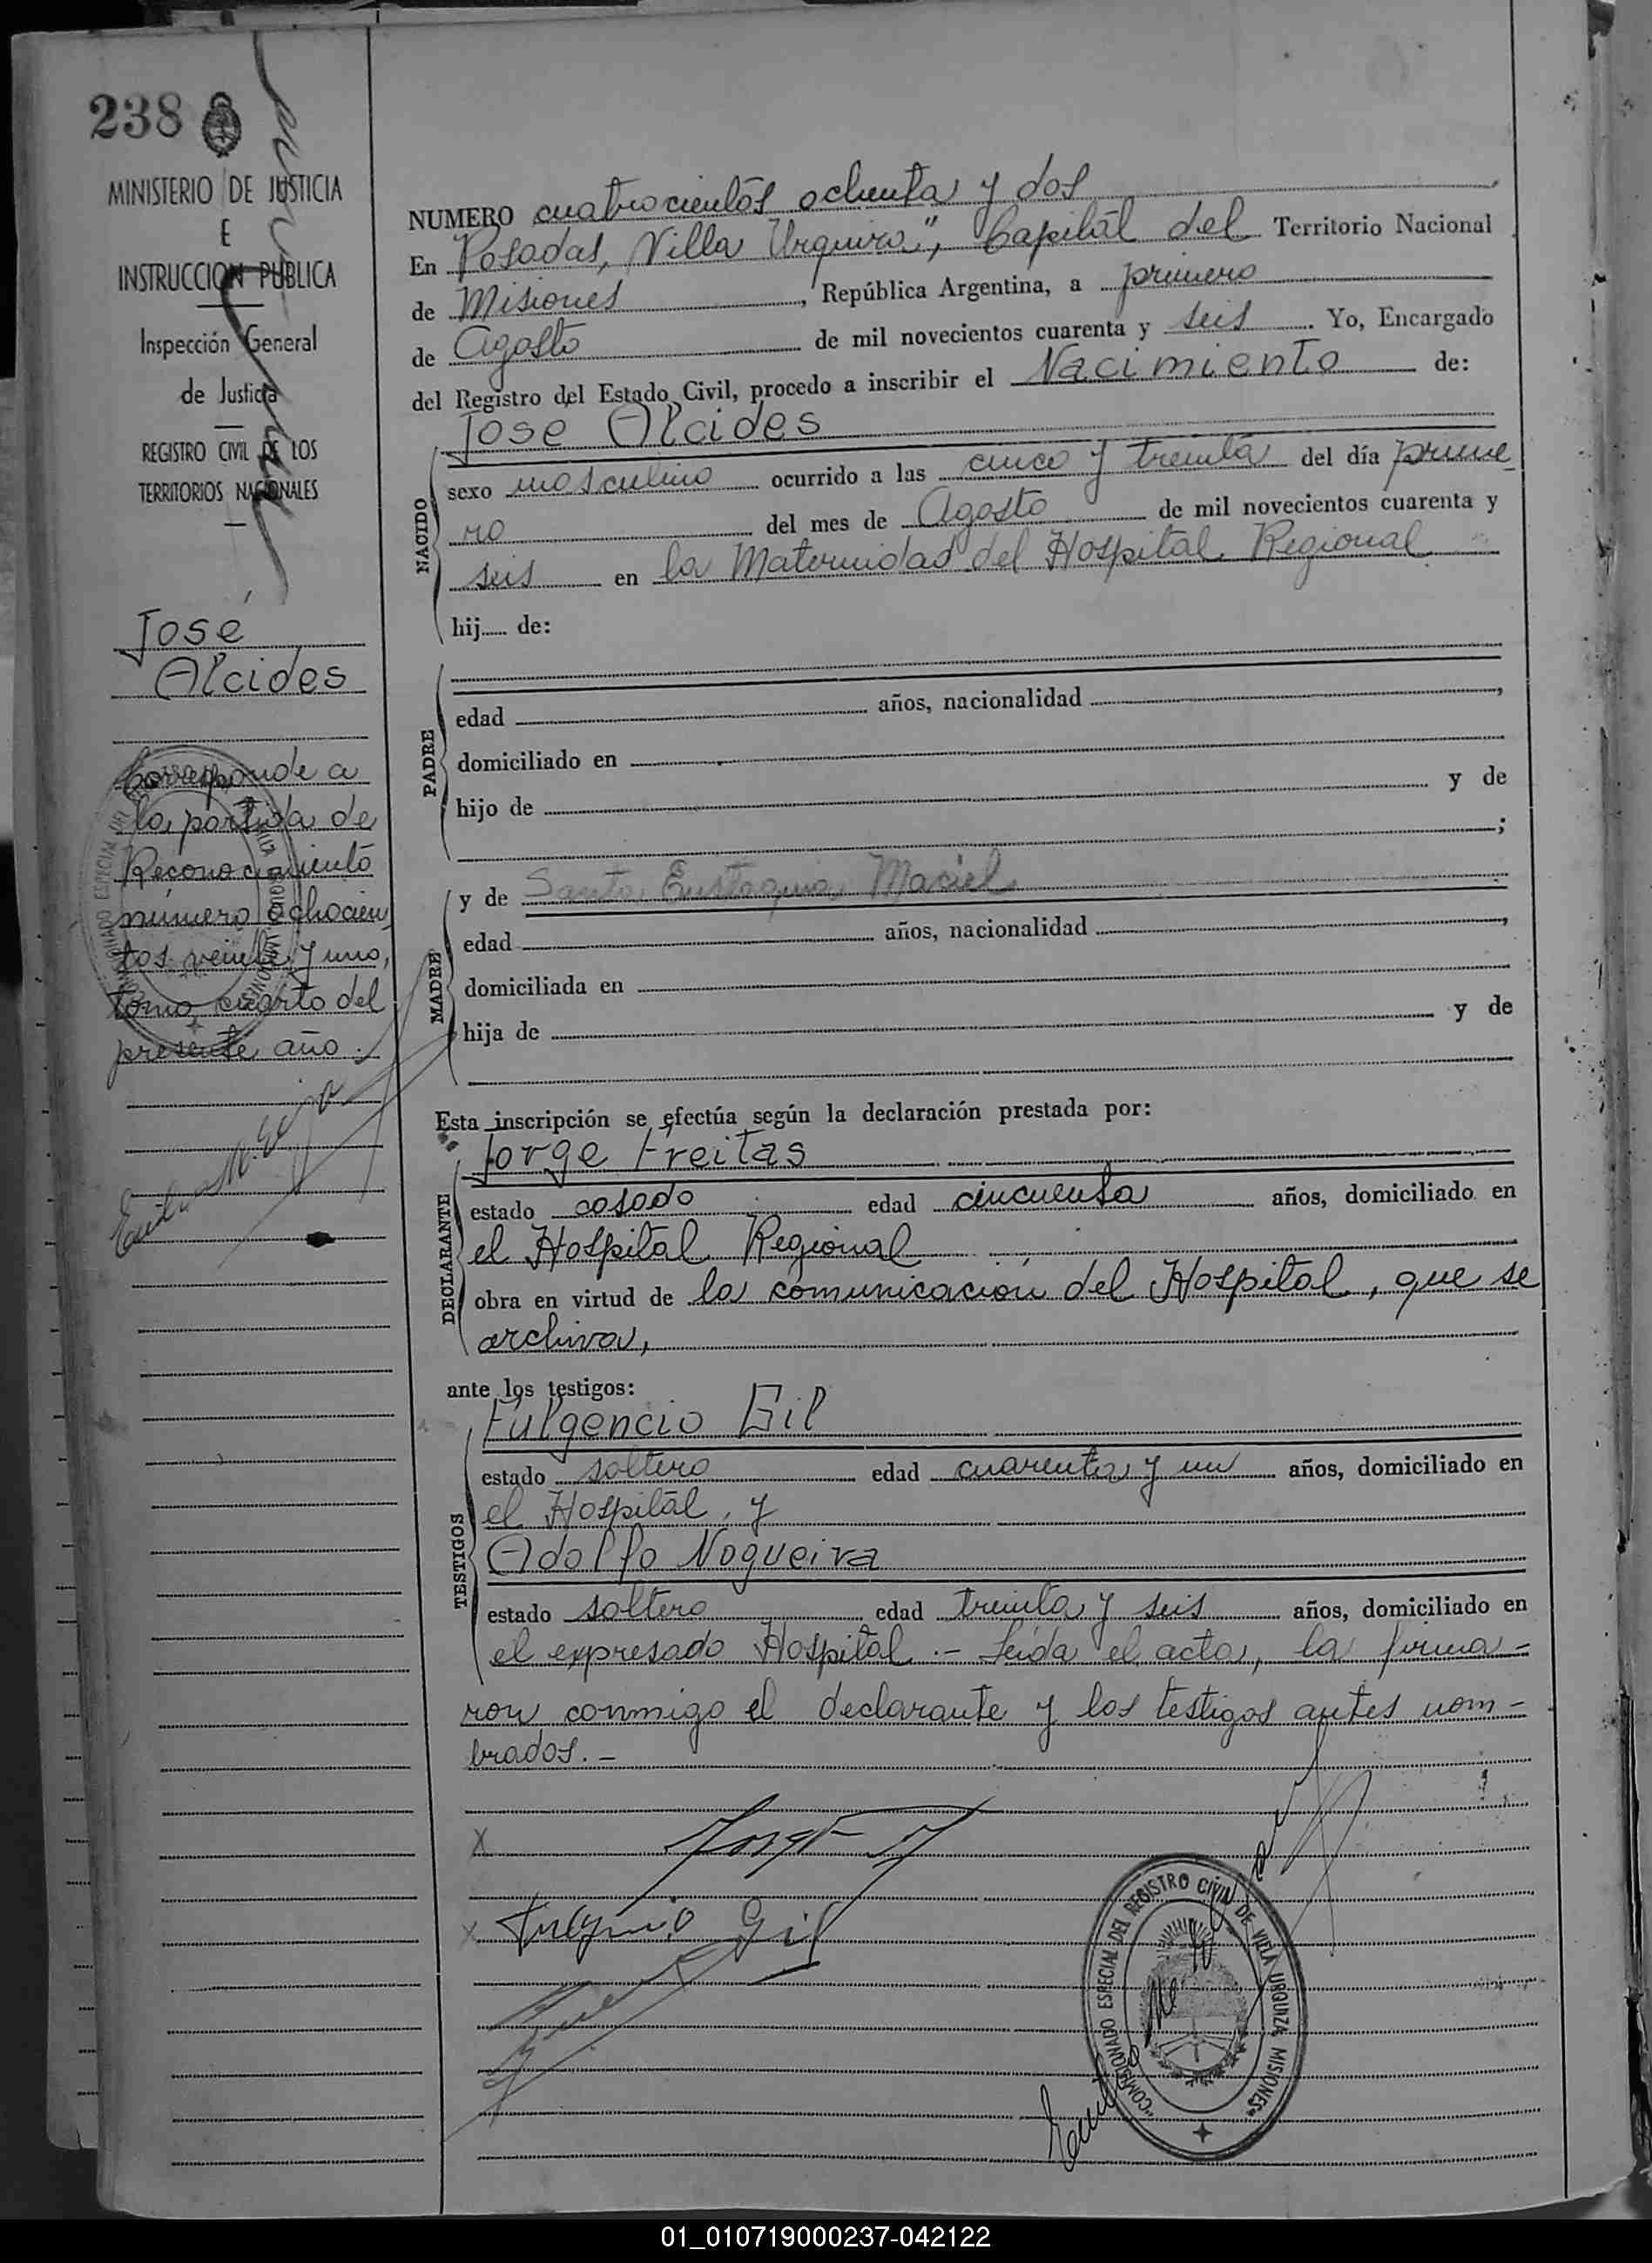 238
MINISTERIO DE JUSTICIA
E
INSTRUCCION PUBLICA
Inspección General
de Justicia
REGISTRO CIVIL DE LOS
TERRITORIOS NACIONALES
José
Alcides
Corresponde a
la partida de
Reconocimiento
número ochocien
tos veinte y uno,
tomo cuarto del
presente año.
NUMERO cuatrocientos ochenta y dos
En Posadas, Villa Urquiza", Capital del Territorio Nacional
de Misiones, República Argentina, a primero
de Agosto de mil novecientos cuarenta y seis. Yo, Encargado
del Registro del Estado Civil, procedo a inscribir el Nacimiento de:
NACIDO
José Alcides
sexo masculino ocurrido a las cinco y treinta del día prime
ro del mes de Agosto de mil novecientos cuarenta y
seis en la Maternidad del Hospital Regional
hij..... de:
PADRE
edad años, nacionalidad ,
domiciliado en
hijo de y de
;
MADRE
y de Santa Eustaquia Maciel
edad años, nacionalidad ,
domiciliada en
hija de y de
Esta inscripción se efectúa según la declaración prestada por:
DECLARANTE
Jorge Freitas
estado casado edad cincuenta años, domiciliado en
el Hospital Regional
obra en virtud de la comunicación del Hospital, que se
archiva,
ante los testigos:
TESTIGOS
Fulgencio Gil
estado soltero edad cuarenta y un años, domiciliado en
el Hospital, y
Adolfo Nogueira
estado soltero edad treinta y seis años, domiciliado en
el expresado Hospital.- Leída el acta, la firma-
ron conmigo el declarante y los testigos antes nom-
brados.-
X Jorge
X Fulgencio Gil
"COMISIONADO ESPECIAL DEL REGISTRO CIVIL DE VILLA URQUIZA MISIONES"
01_010719000237-042122